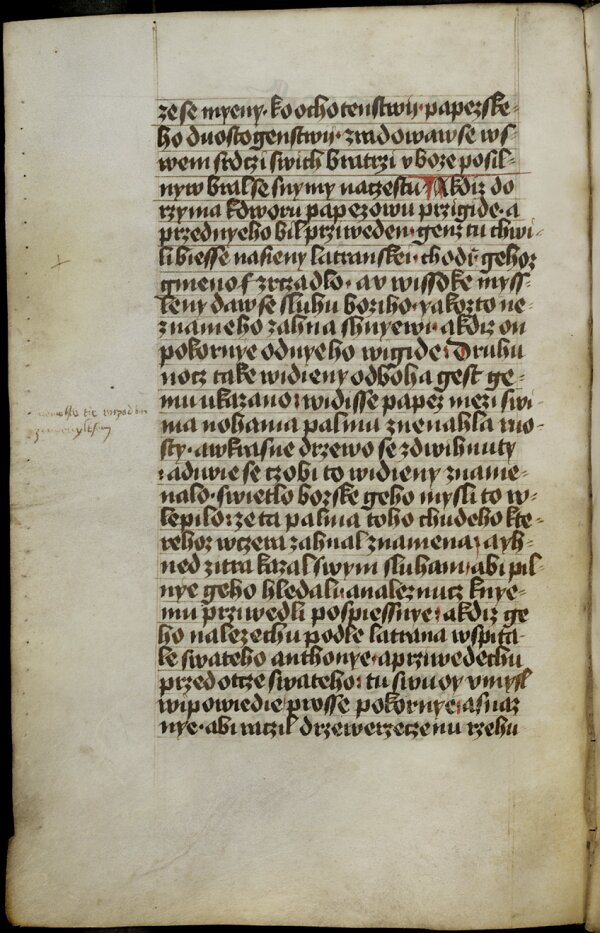 ze se myeny· ko ochotenstwij· papezske-
ho duostogenstwij· zradowaw se w s-
wem srdczi swich bratrzi v boze posil-
nyw bral se s nymy na czestu A kdiz do
rzyma k dworu papezowu przigide· a
przed nyeho bil prziweden· genz tu chwi-
li biesse na sieny latranskei· chodě gehoz
gmeno f zrczadlo· a v wissoke mys-
leny daw se sluhu boziho· yakozto ne-
znameho zahna s hnyewi· a kdiz on
pokornye od nyeho wigide: Druhu
nocz take widieny od boha gest ge-
mu ukazano: widisse papez mezi swi-
ma nohama palmu znenahla ro-
sty· a w krasne drzewo se zdwihnuty
: a diwie se czobi to widieny zname-
nalo· swietlo bozske geho mysli to w-
lepilo: ze ta palma toho chudeho kte-
rehoz wczera zahnal znamena: a yh-
ned zitra kazal swym sluham: abi pil-
nye geho hledali· a naleznucz k nye-
mu prziwedli pospiessnye: a kdiz ge
ho nalezechu podle latrana w spita-
le swateho anthonye· a prziwedechu
przed otcze swateho: tu swuoy vmysl
wipowiedie prosse pokornye: a snaz
nye· abi raczil drzewerzeczenu rzehu